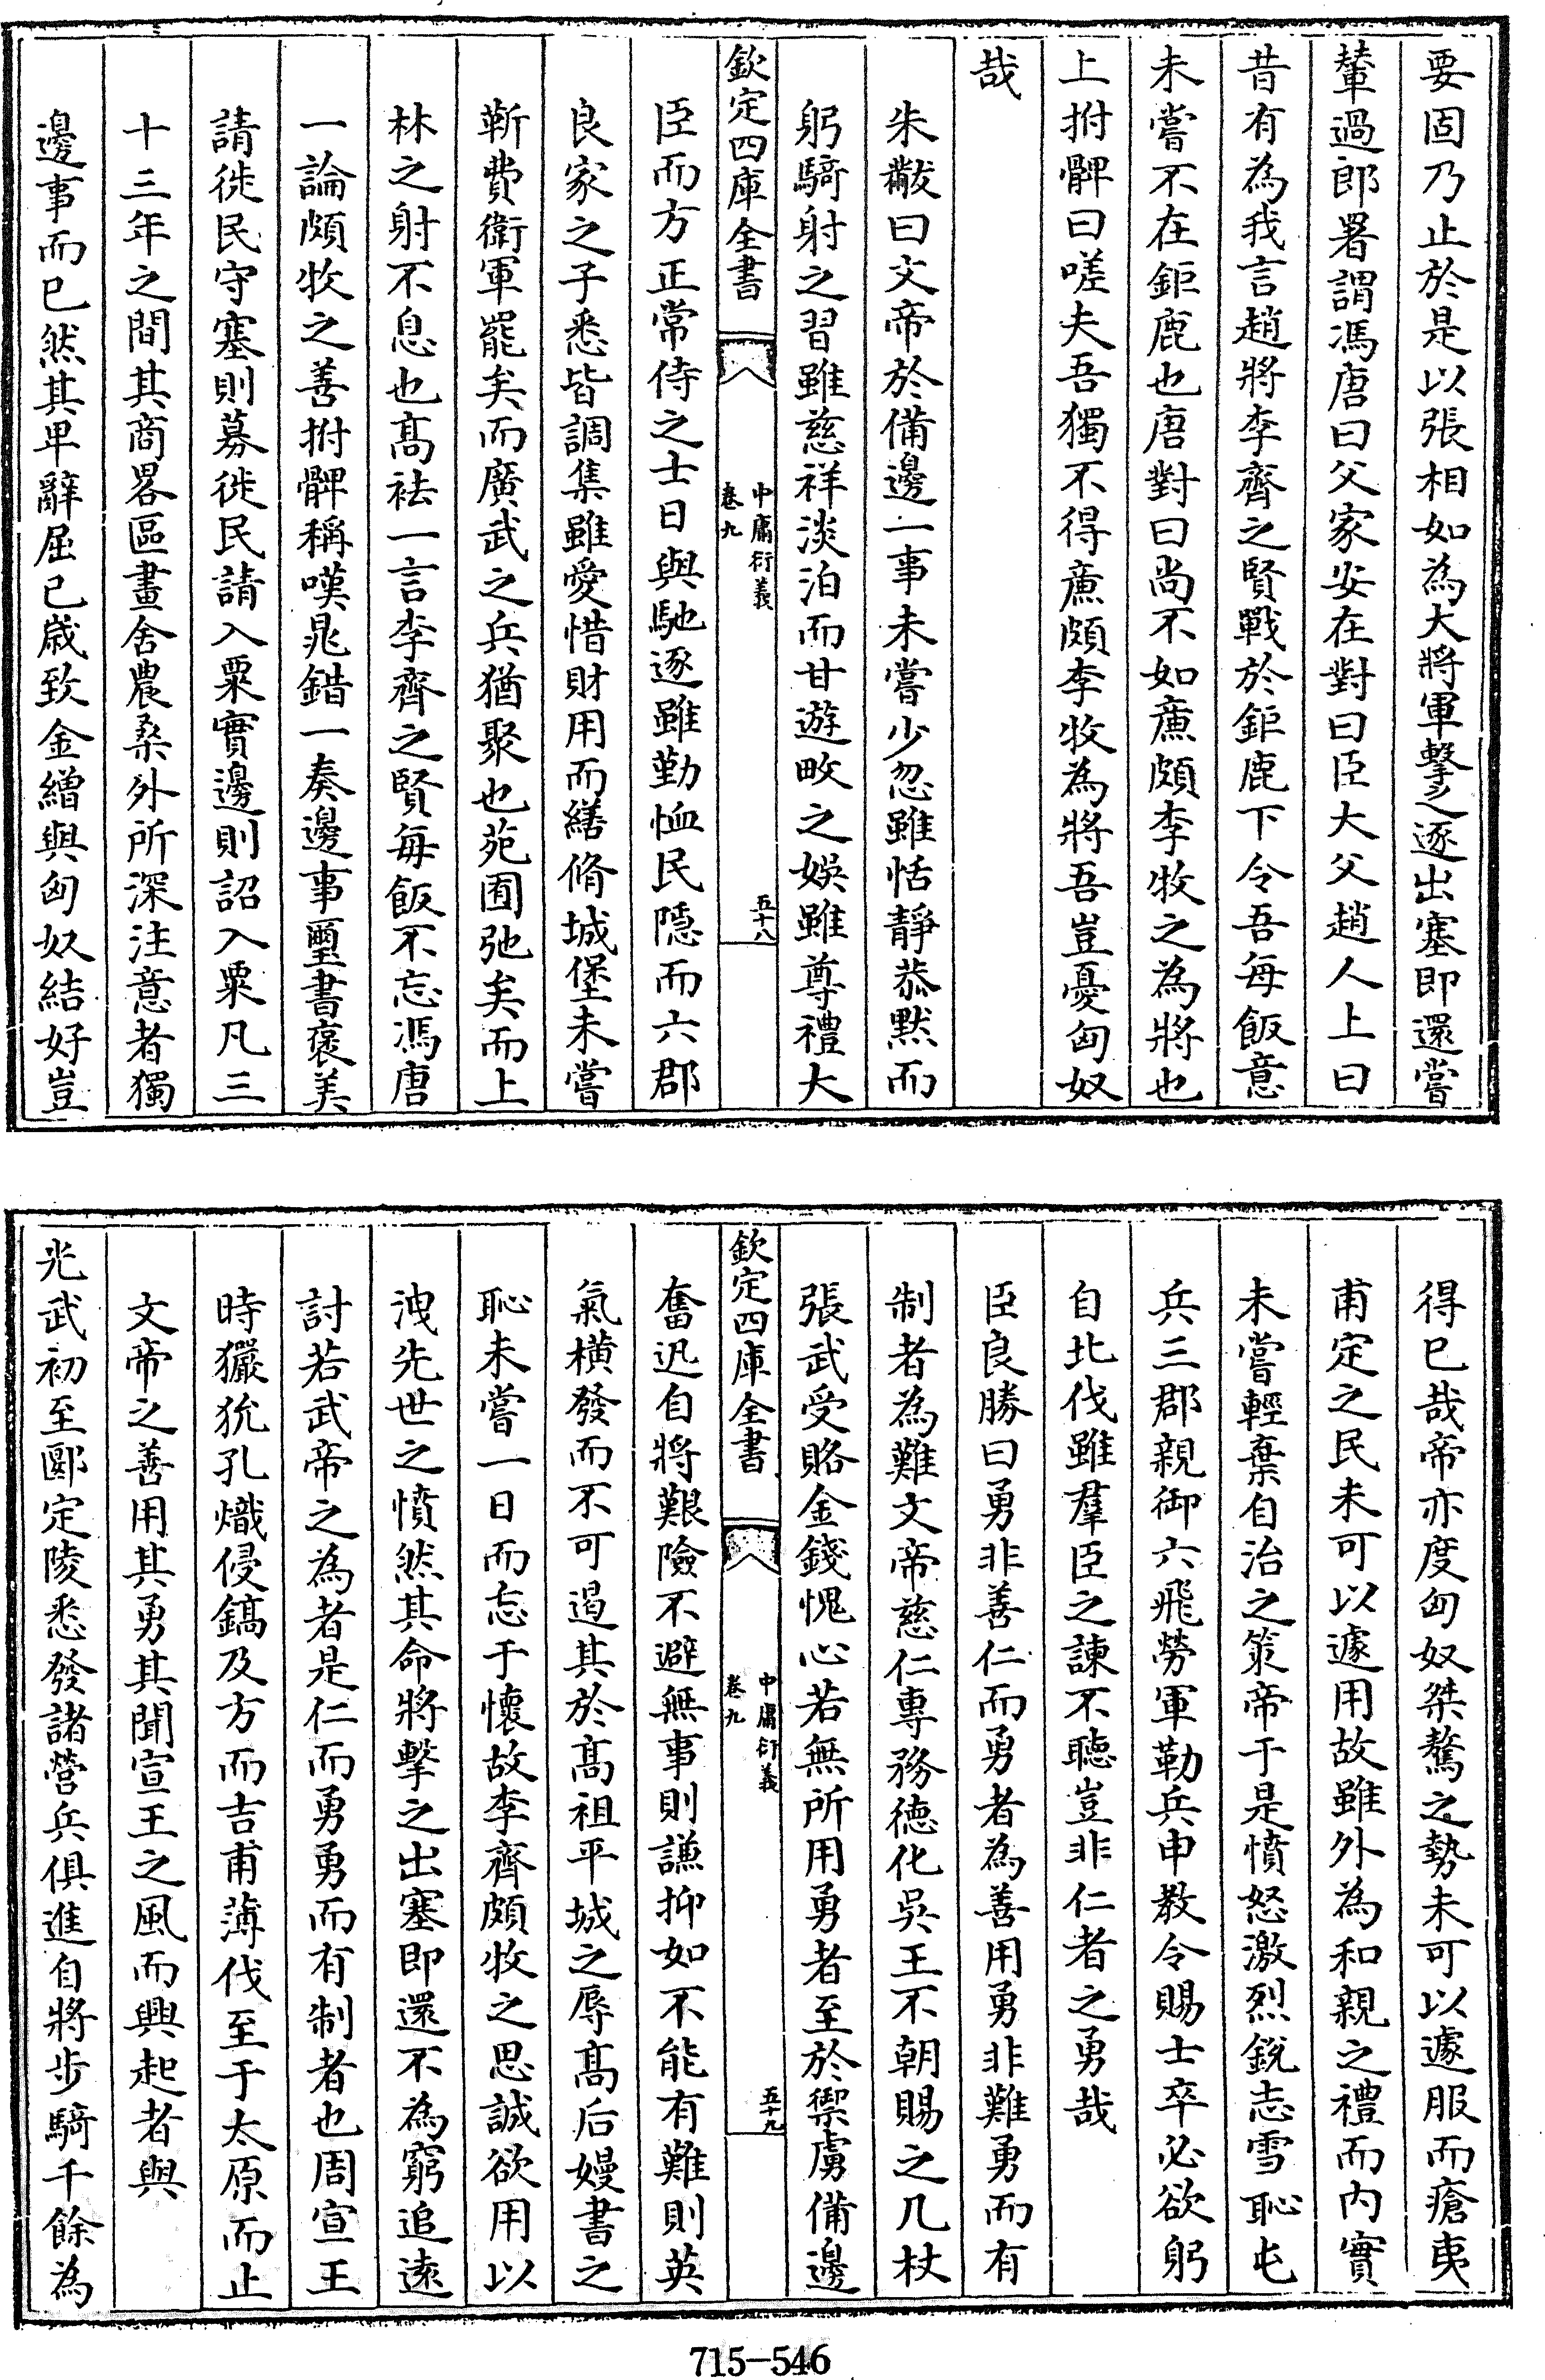 要固乃止於是以張相如為大將軍擊之逐出塞即還嘗
輦過郎署謂馮唐曰父家安在對曰臣大父趙人上曰
昔有為我言趙將李齊之賢戰於鉅鹿下令吾每飯意
未嘗不在鉅鹿也唐對曰尚不如亷頗李牧之為將也
上拊髀曰嗟夫吾獨不得亷頗李牧為將吾豈憂匈奴
哉
朱黻曰文帝於備邊一事未嘗少忽雖恬靜恭默而
躬騎射之習雖慈祥淡泊而甘遊畋之娛雖尊禮大
欽定四庫全書
中庸衍義
卷九
五十八
臣而方正常侍之士日與馳逐雖勤恤民隱而六郡
良家之子悉皆調集雖愛惜財用而繕脩城堡未嘗
靳費衛軍罷矣而廣武之兵猶聚也苑囿弛矣而上
林之射不息也髙袪一言李齊之賢每飯不忘馮唐
一論頗牧之善拊髀稱嘆鼂錯一奏邊事璽書褒美
請徙民守塞則募徙民請入粟實邊則詔入粟凡三
十三年之間其商畧區畫舍農桑外所深注意者獨
邊事而已然其卑辭屈已嵗致金繒與匈奴結好豈
得已哉帝亦度匈奴桀驁之勢未可以遽服而瘡夷
甫定之民未可以遽用故雖外為和親之禮而内實
未嘗輕棄自治之䇿帝于是憤怒激烈鋭志雪恥屯
兵三郡親御六飛勞軍勒兵申教令賜士卒必欲躬
自北伐雖羣臣之諫不聽豈非仁者之勇哉
臣良勝曰勇非善仁而勇者為善用勇非難勇而有
制者為難文帝慈仁專務徳化吳王不朝賜之几杖
張武受賂金錢愧心若無所用勇者至於禦虜備邊
欽定四庫全書
中庸衍義
卷九
五十九
奮迅自將艱險不避無事則謙抑如不能有難則英
氣橫發而不可遏其於髙祖平城之辱髙后嫚書之
恥未嘗一日而忘于懷故李齊頗牧之思誠欲用以
洩先世之憤然其命將擊之出塞即還不為窮追逺
討若武帝之為者是仁而勇勇而有制者也周宣王
時玁狁孔熾侵鎬及方而吉甫薄伐至于太原而止
文帝之善用其勇其聞宣王之風而興起者與
光武初至郾定陵悉發諸營兵俱進自將步騎千餘為
715-546